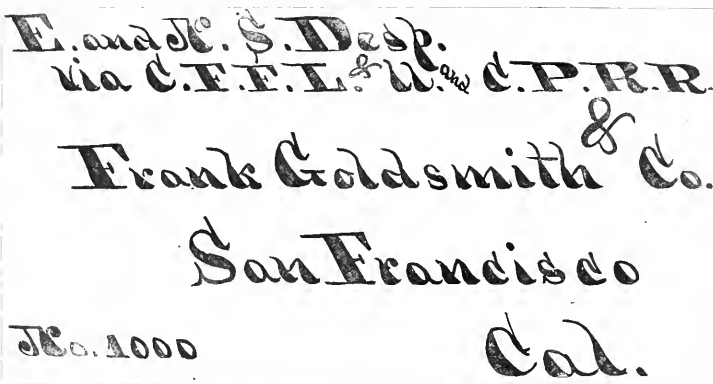 E. and N. S. Desp.
via C. F. F. L. & W. and C. P. R. R.
Frank Goldsmith & Co.
San Francisco
No. 1000 Cal.